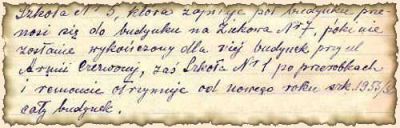 Szkoła Nr 5, która zajmuje pół budynku prze-
nosi się do budynku na Żukowa Nr 7, póki nie
zostanie wykończony dla niej budynek przy ul
Armii Czerwonej, zaś Szkoła Nr 1 po przeróbkach
i remoncie otrzymuje od nowego roku szk. 1957/58
cały budynek.